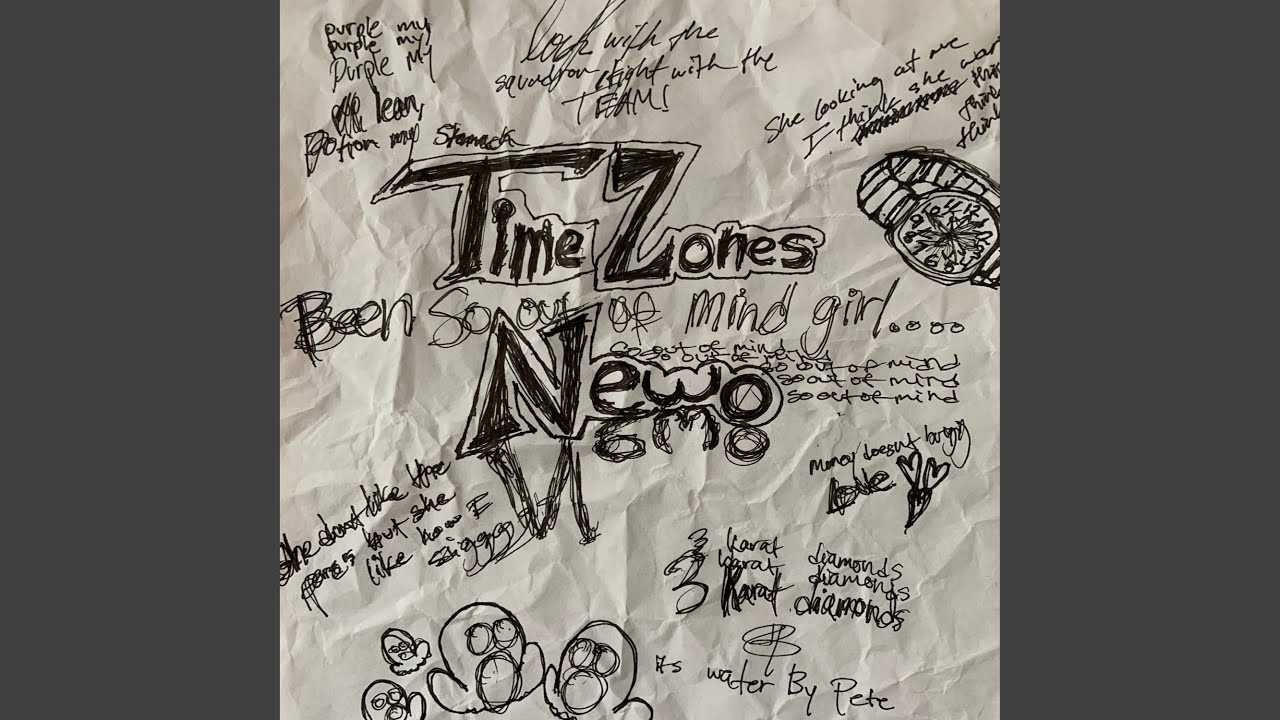 purple my
purple my
Purple My
lean
Potion my Stomack
lock with the
squadron flight with the
TEAM!
She looking at me
I think she wan
think
think
Time Zones
Been So out of mind girl....
so out of mind
so out of mind
so out of mind
so out of mind
so out of mind
Newo
money doesnt buyyy
Love
She dont like
but she
like how I
3 karat diamonds
karat diamonds
3 Karat diamonds
its water By Pete